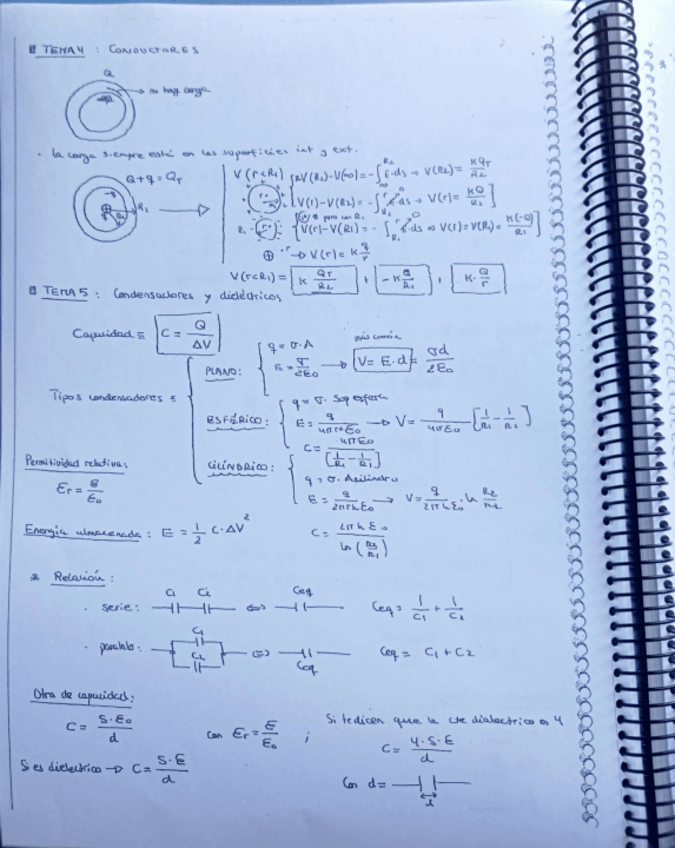 TEMA 4 : CONDUCTORES
Q
→ no hay carga
· la carga siempre está en las superficies int y ext.
Q + q = Q_T
R_1
V(r<R_1)
V(R_2) - V(∞) = -∫ E·ds → V(R_2) = KQ_T/R_2
V(r) - V(R_2) = -∫ E·ds → V(r) = KQ/R_2
V(r) - V(R_1) = -∫ E·ds ⇒ V(r) = V(R_1) = K(-Q)/R_1
⊕ ·r → V(r) = K q/r
V(r<R_1) = K Q_T/R_2 + -K q/R_1 + K·Q/r
TEMA 5 : Condensadores y dieléctricos
Capacidad ≡ C = Q/ΔV
más común
Tipos condensadores
PLANO:
q = σ·A
E = σ/2ε_0 → V = E·d = σd/2ε_0
ESFÉRICO:
q = σ·Sup esfera
E = q/4πr²ε_0 → V = q/4πε_0 [1/R_1 - 1/R_2]
C = 4πε_0/[1/R_1 - 1/R_1]
CILÍNDRICO:
q = σ·Acilindro
E = q/2πrhε_0 → V = q/2πhε_0 · ln R_2/R_1
C = 2πhε_0/ln(R_2/R_1)
Permitividad relativa:
ε_r = ε/ε_0
Energía almacenada : E = 1/2 C·ΔV²
* Relación :
· serie: C_1 C_2 ⇔ Ceq Ceq = 1/C_1 + 1/C_2
· paralelo: C_1 C_2 ⇔ Ceq Ceq = C_1 + C_2
Otra de capacidad:
C = S·ε_0/d con ε_r = ε/ε_0 ;
Si es dieléctrico → C = S·ε/d
Si te dicen que la cte dialectrico es 4
C = 4·S·E/d
Con d = d